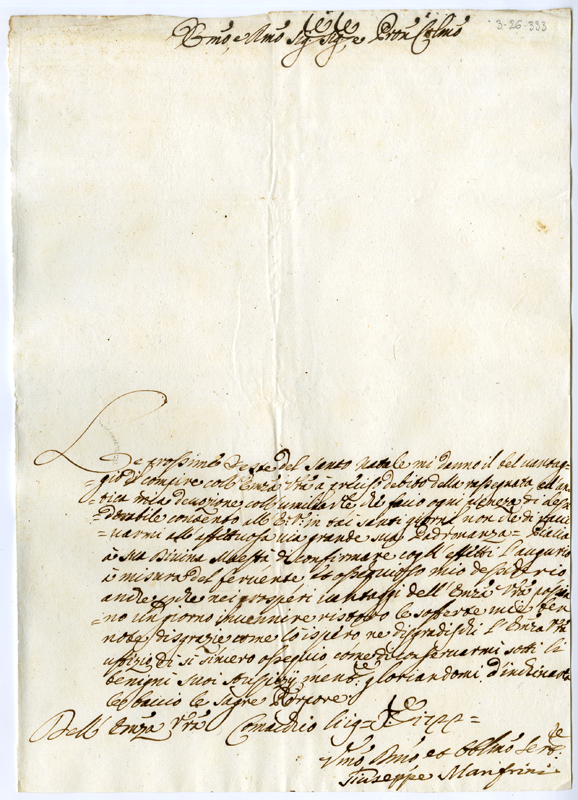 3-26-333
Emo, e Rmo Sig.re Sig.re, e Pron Colmo
Le prossime Feste del Santo Natale mi danno il bel vantag-
=gio di compire coll'Emza Vra à preciso debito della rassegnata ed an-
tica mia devozione coll'umiliarle che faccio ogni pienezza di desi-
=derabile contento alle Sti in tai santi giorni non che di racco-
=varmi alla affettuosa via grande sua Padronanza= Piaccia
à Sua Divina Maestà di confirmare cogli effetti l'augurio
à misura del fervente et ossequioso mio desiderio
anche che nei prosperi vantaggi dell'Emza Vra possa-
no un giorno rinvenire ristoro le sofferte mie ben
note disgrazie come lo spero ne disgradischi l'Emza Vra
uffizio di sì sincero ossequio come di conservarmi sotto li
benigni suoi gloriandomi d'inchinarle
le bacio le Sagre Porpore
Dell'Emza Vra Comacchio li
Umo Dmo et Obblmo Serv.re
Giuseppe Manfrini